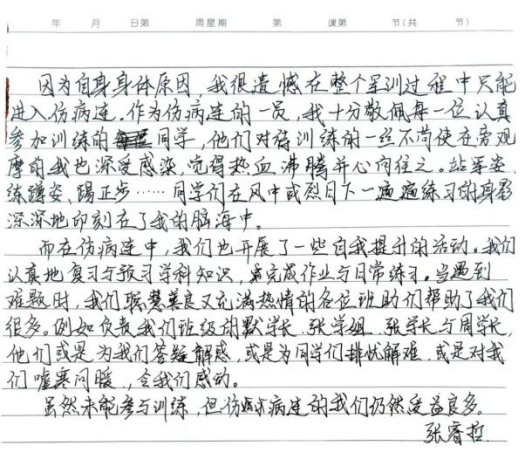 年 月 日第 周星期 第 课第 节(共 节)
因为自身身体原因,我很遗憾在整个军训过程中只能
进入伤病连。作为伤病连的一员,我十分敬佩每一位认真
参加训练的同学,他们对待训练的一丝不苟使在旁观
摩的我也深受感染,觉得热血沸腾并心向往之。站军姿、
练蹲姿、踢正步……同学们在风中或烈日下一遍遍练习的身影
深深地印刻在了我的脑海中。
而在伤病连中,我们也开展了一些自我提升的活动。我们
认真地复习与预习学科知识,完成作业与日常练习。当遇到
难题时,我们聪慧善良又充满热情的各位班助们帮助了我们
很多。例如负责我们班级的默学长、张学姐、张学长与周学长,
他们或是为我们答疑解惑,或是为同学们排忧解难,或是对我
们嘘寒问暖,令我们感动。
虽然未能参与训练,但伤病连的我们仍然受益良多。
张睿哲